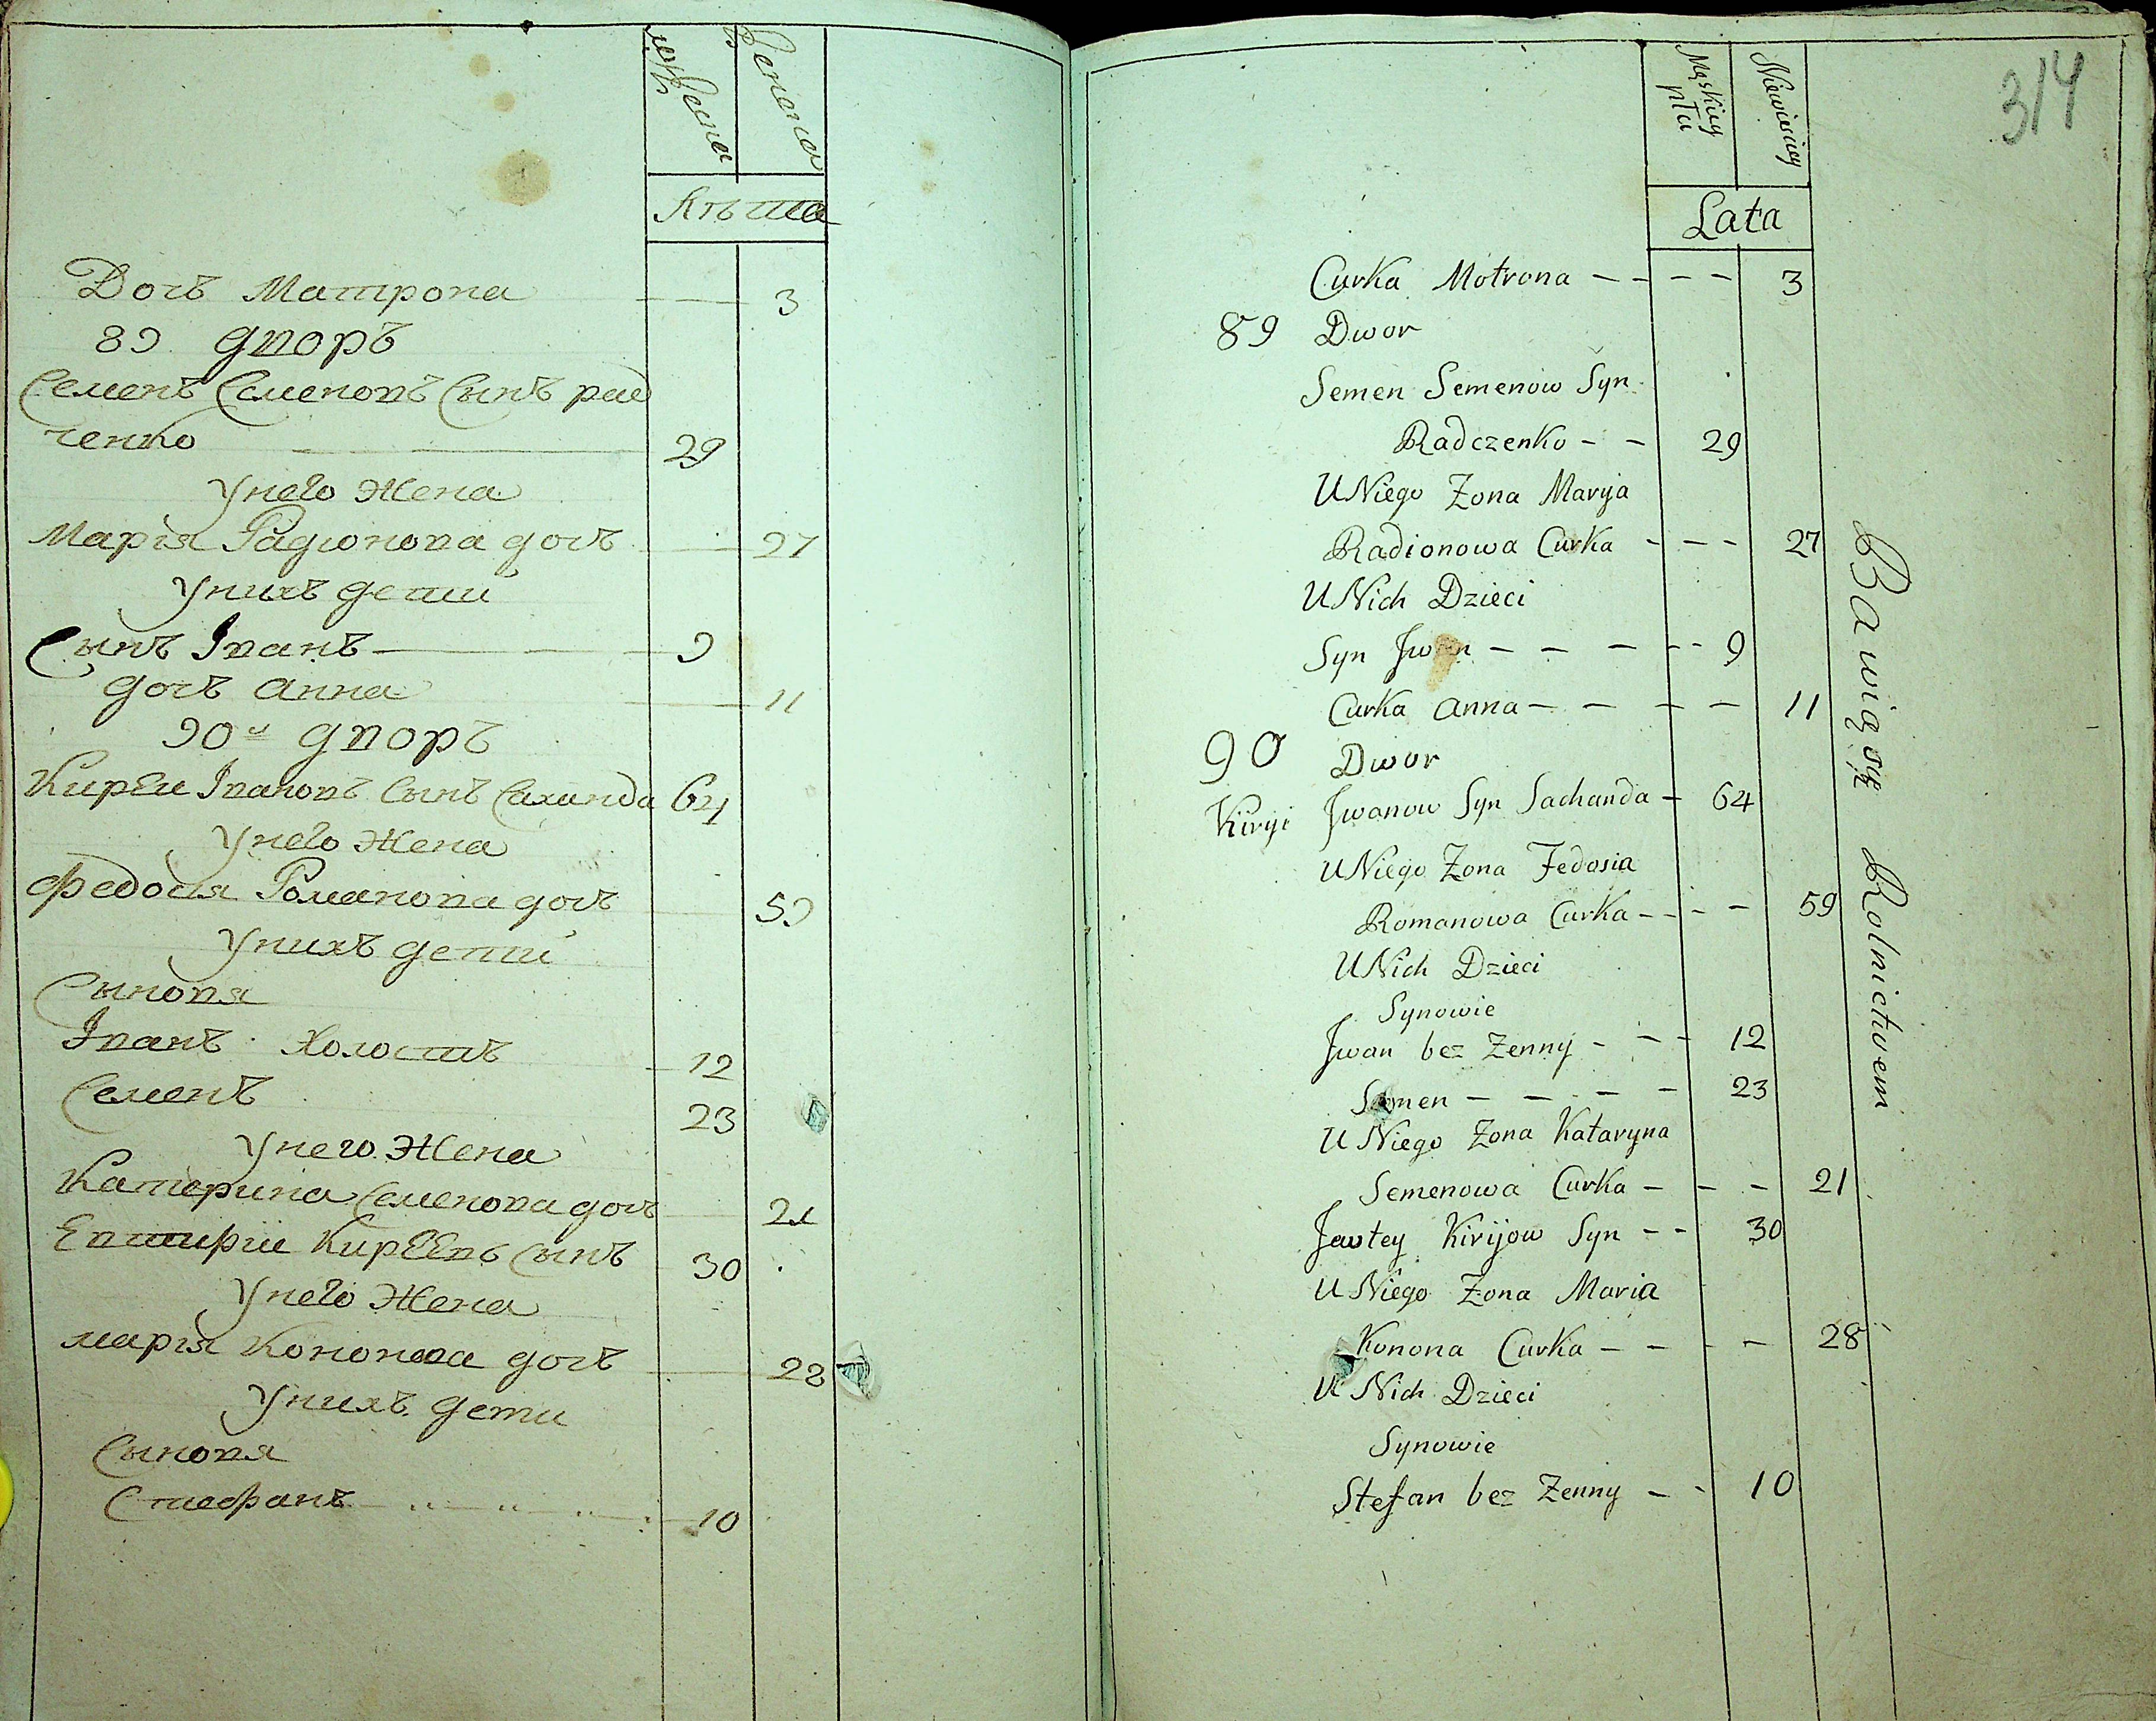 мужеска
женска
Лѣта
Дочь Матрона 3
89 дворъ
Семенъ Семеновъ Сынъ рад
ченко 29
У него жена
Марія Радионова дочь 27
У нихъ дети
Сынъ Іванъ 9
дочь анна 11
90й дворъ
Кирѣи Івановъ Сынъ Саханда 64
У него жена
Федосия Романова дочь 59
У нихъ дети
Сыновя
Іванъ Холостъ 12
Семенъ 23
У него жена
Катерина Семенова дочь 21
Евтифіи Кирѣевъ Сынъ 30
У него жена
марія Кононова дочь 28
У нихъ дети
Сыновя
Стефанъ 10
314
Mąskiey płci
Niewieściey
Lata
Curka Motrona - - - - 3
89 Dwor
Semen Semenow Syn
Radczenko - - 29
U Niego Zona Maryja
Radionowa Curka - - - 27
U Nich Dzieci
Syn Jwan - - - - - 9
Curka Anna - - - - 11
90 Dwor
Kiryi Jwanow Syn Sachanda - 64
U Niego Zona Fedosia
Romanowa Curka - - - - 59
U Nich Dzieci
Synowie
Jwan bez Zenny - - - 12
Semen - - - - - 23
U Niego Zona Kataryna
Semenowa Curka - - - 21
Jewtey Kirijow Syn - - 30
U Niego Zona Maria
Konona Curka - - - - 28
U Nich Dzieci
Synowie
Stefan bez Zenny - - 10
Bawią się Rolnictwem